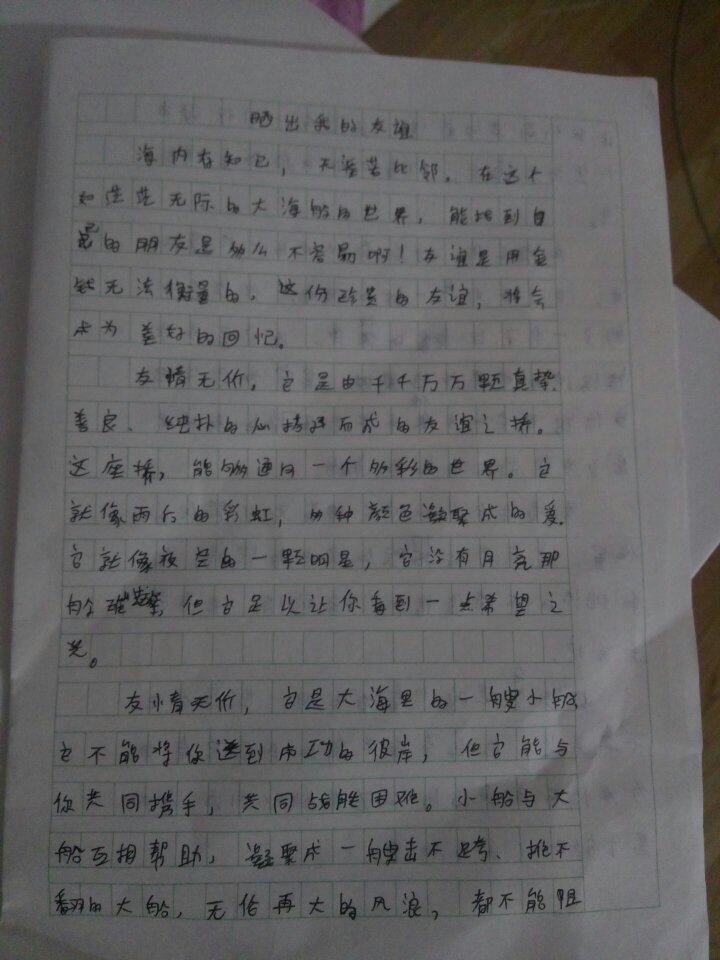 晒出我的友谊
海内存知己，天涯若比邻。在这个
如茫茫无际的大海般的世界，能找到自
己的朋友是多么不容易啊！友谊是用金
钱无法衡量的。这份珍贵的友谊，将会
成为美好的回忆。
友情无价，它是由千千万万颗真挚、
善良、纯朴的心搭建而成的友谊之桥。
这座桥，能够通向一个多彩的世界。它
就像雨后的彩虹，多种颜色凝聚成的爱。
它就像夜空的一颗明星，它没有月亮那
般璀璨，但它足以让你看到一点希望之
光。
友情无价，它是大海里的一艘小船，
它不能将你送到成功的彼岸，但它能与
你共同携手，共同战胜困难。小船与大
船互相帮助，凝聚成一艘击不垮、推不
翻的大船，无论再大的风浪，都不能阻